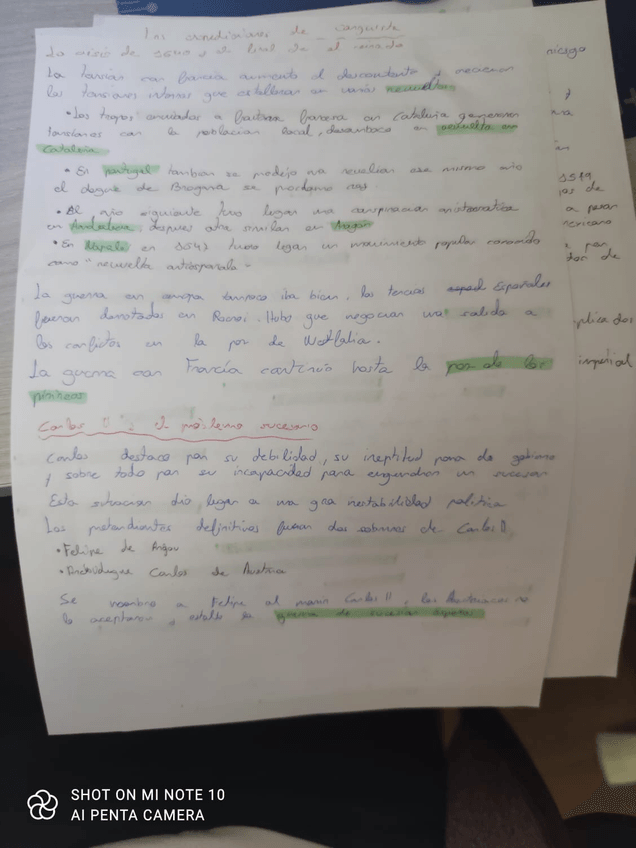 Las expediciones de conquista
La crisis de 1640 y el final de el reinado
La tension con francia aumento el descontento y crecieron
las tensiones internas que estallaron en varias revueltas
• Las tropas enviadas a frontera francesa en Cataluña generaron
tensiones con la poblacion local, desemboco en revuelta en
Cataluña
• En portugal tambien se produjo una revuelta ese mismo año
el duque de Braganza se proclamo rey.
• Al año siguiente tuvo lugar una conspiracion aristocratica
en Andalucia despues otra similar en Aragon
• En Napoles en 1647 tuvo lugar un movimiento popular conocido
como "revuelta antiespañola"
La guerra en europa tampoco iba bien, los tercios Españoles
fueron derrotados en Rocroi. Hubo que negociar una salida a
los conflictos en la paz de Westfalia.
La guerra con Francia continuo hasta la paz de los
pirineos
Carlos II y el problema sucesorio
Carlos destaco por su debilidad, su ineptitud para de gobierno
y sobre todo por su incapacidad para engendrar un sucesor
Esta situacion dio lugar a una gran inestabilidad politica
Los pretendientes definitivos fueron dos sobrinos de Carlos II,
• Felipe de Anjou
• Archiduque Carlos de Austria
Se nombro a Felipe al morir Carlos II, los Austriacos no
lo aceptaron y estallo la guerra de sucesion española
riesgo
y
1519
de
a pesar
mexicano
por
de
implicados
imperial
SHOT ON MI NOTE 10
AI PENTA CAMERA